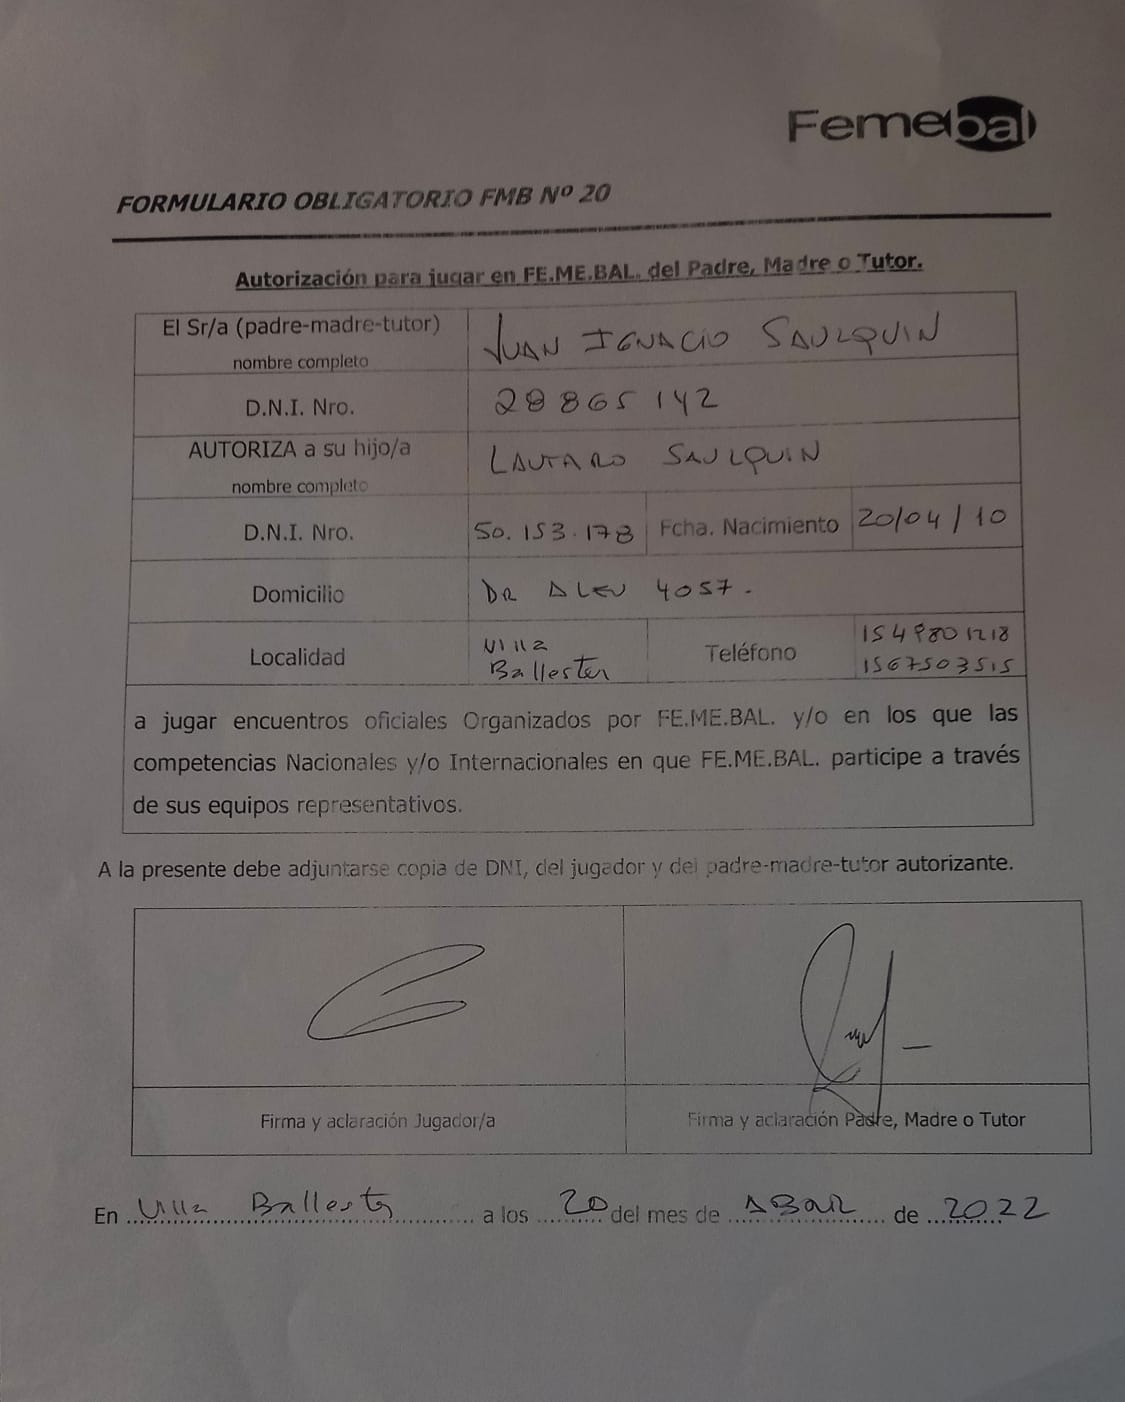 Femebal
FORMULARIO OBLIGATORIO FMB Nº 20
Autorización para jugar en FE.ME.BAL. del Padre, Madre o Tutor.
El Sr/a (padre-madre-tutor)
nombre completo
JUAN IGNACIO SAULQUIN
D.N.I. Nro.
28865142
AUTORIZA a su hijo/a
nombre completo
LAUTARO SAULQUIN
D.N.I. Nro. 50.153.178 Fcha. Nacimiento 20/04/10
Domicilio DR ALEU 4057.
Localidad
Villa
Ballester
Teléfono
1549801218
1567503515
a jugar encuentros oficiales Organizados por FE.ME.BAL. y/o en los que las
competencias Nacionales y/o Internacionales en que FE.ME.BAL. participe a través
de sus equipos representativos.
A la presente debe adjuntarse copia de DNI, del jugador y del padre-madre-tutor autorizante.
Firma y aclaración Jugador/a
Firma y aclaración Padre, Madre o Tutor
En Villa Ballester a los 20 del mes de de 2022